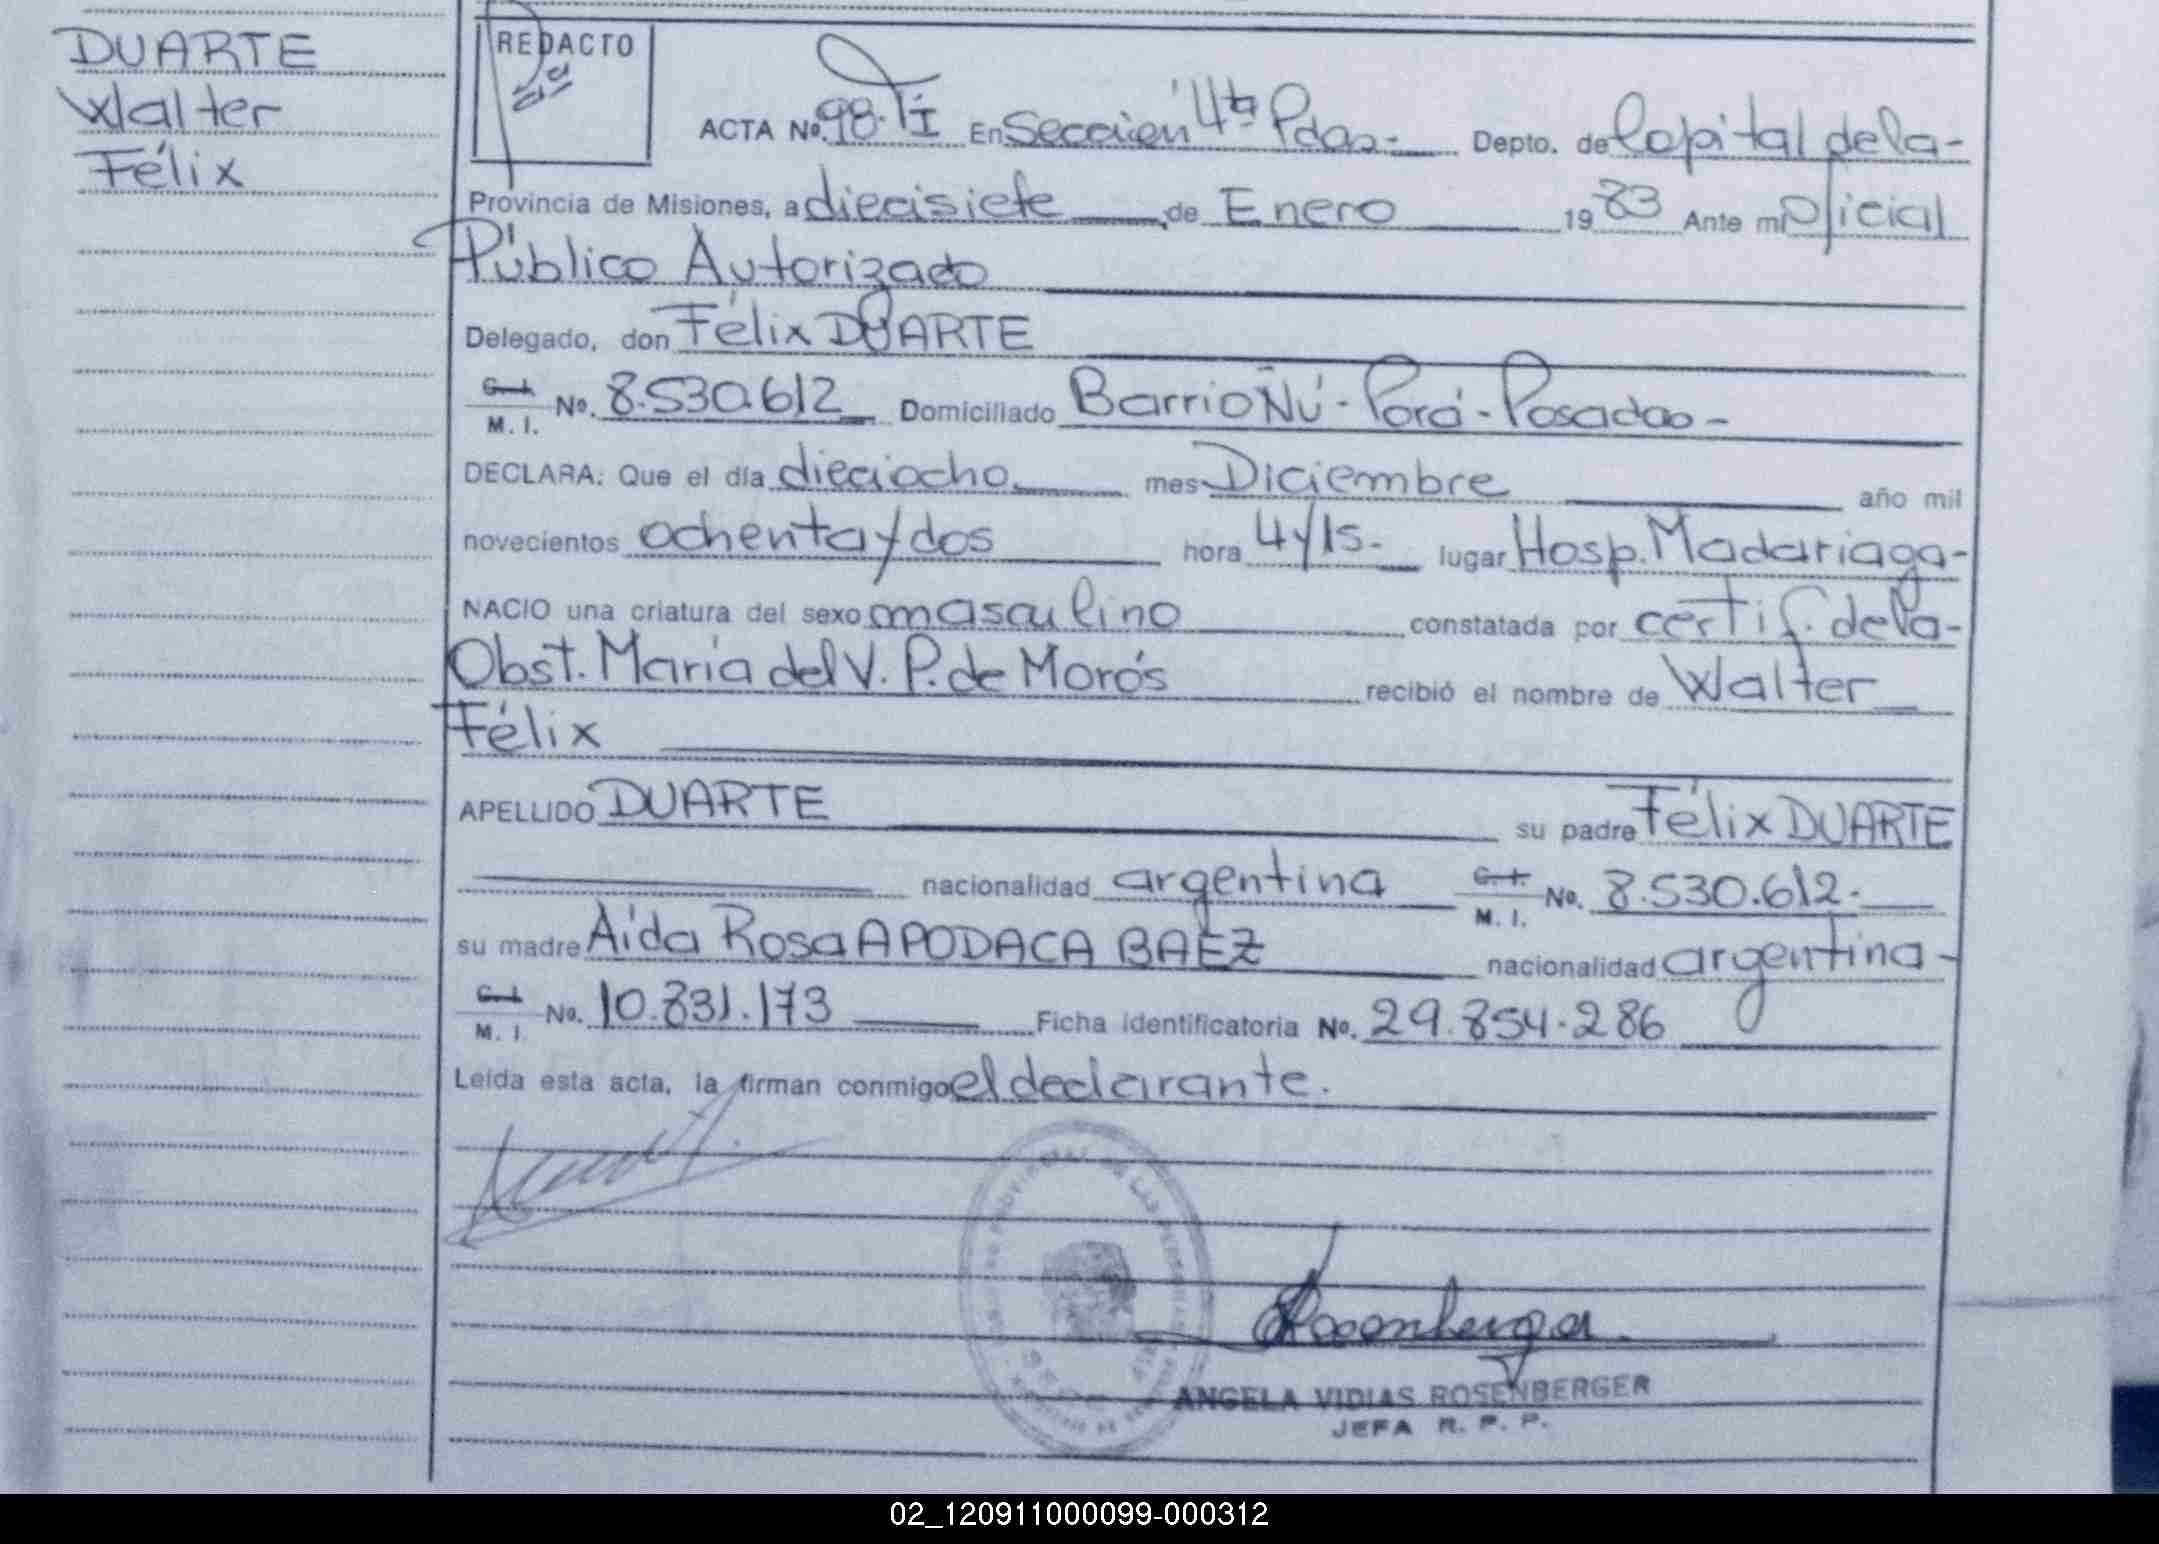 DUARTE
Walter
Félix
REDACTO
ACTA No. 98. TI En Sección 4ta Pdas- Depto. de Capital de la-
Provincia de Misiones, a diecisiete de Enero 1983 Ante mi Oficial
Público Autorizado
Delegado, don Félix DUARTE
C. I. M. I. No. 8.530.612 Domiciliado Barrio Ñú-Porá-Posadas-
DECLARA: Que el día dieciocho mes Diciembre año mil
novecientos ochenta y dos hora 4 y 15.- lugar Hosp. Madariaga-
NACIO una criatura del sexo masculino constatada por certif. de la-
Obst. María del V. P. de Morós recibió el nombre de Walter
Félix
APELLIDO DUARTE su padre Félix DUARTE
nacionalidad argentina C. I. M. I. No. 8.530.612.-
su madre Aída Rosa APODACA BAEZ nacionalidad argentina-
C. I. M. I. No. 10.831.173 Ficha identificatoria No. 29.854.286
Leída esta acta, la firman conmigo el declarante.
Rosenberger
ANGELA VIDIAS ROSENBERGER
JEFA R. P. P.
02_120911000099-000312